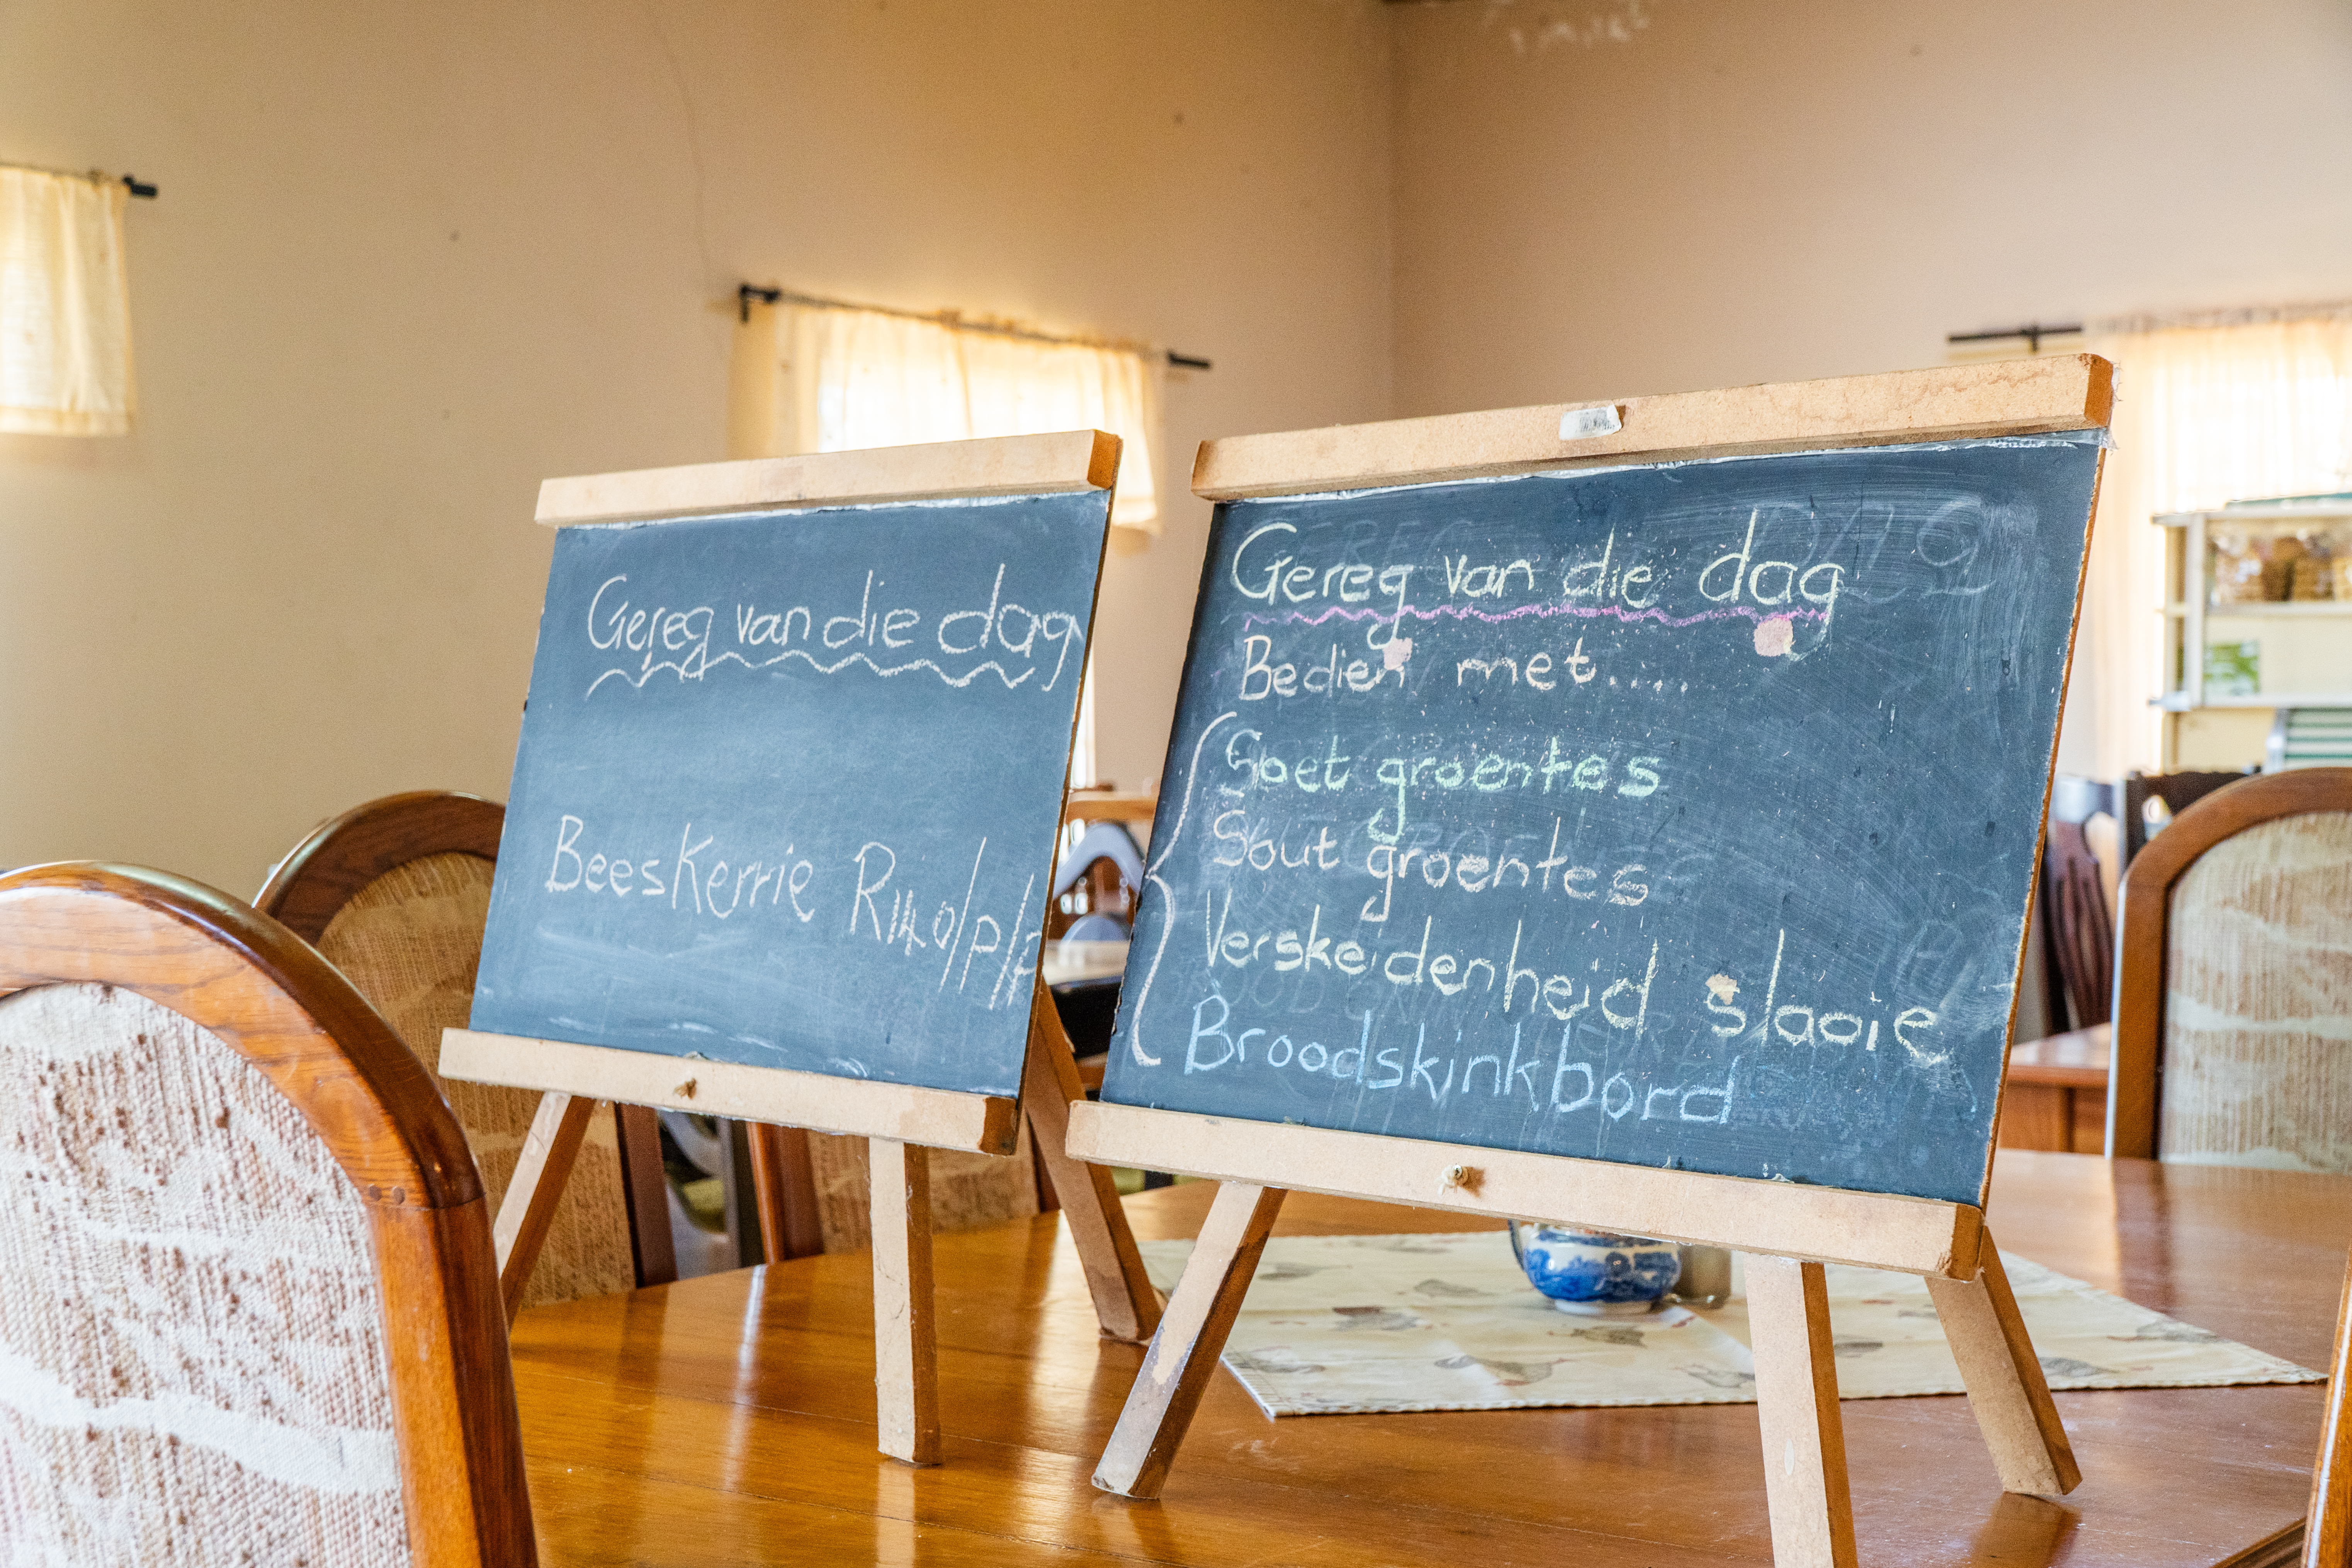 Gereg van die dag
Beeskerrie R140/p/p
Gereg van die dag
Bedien met.....
Soet groentes
Sout groentes
Verskeidenheid slaaie
Broodskinkbord